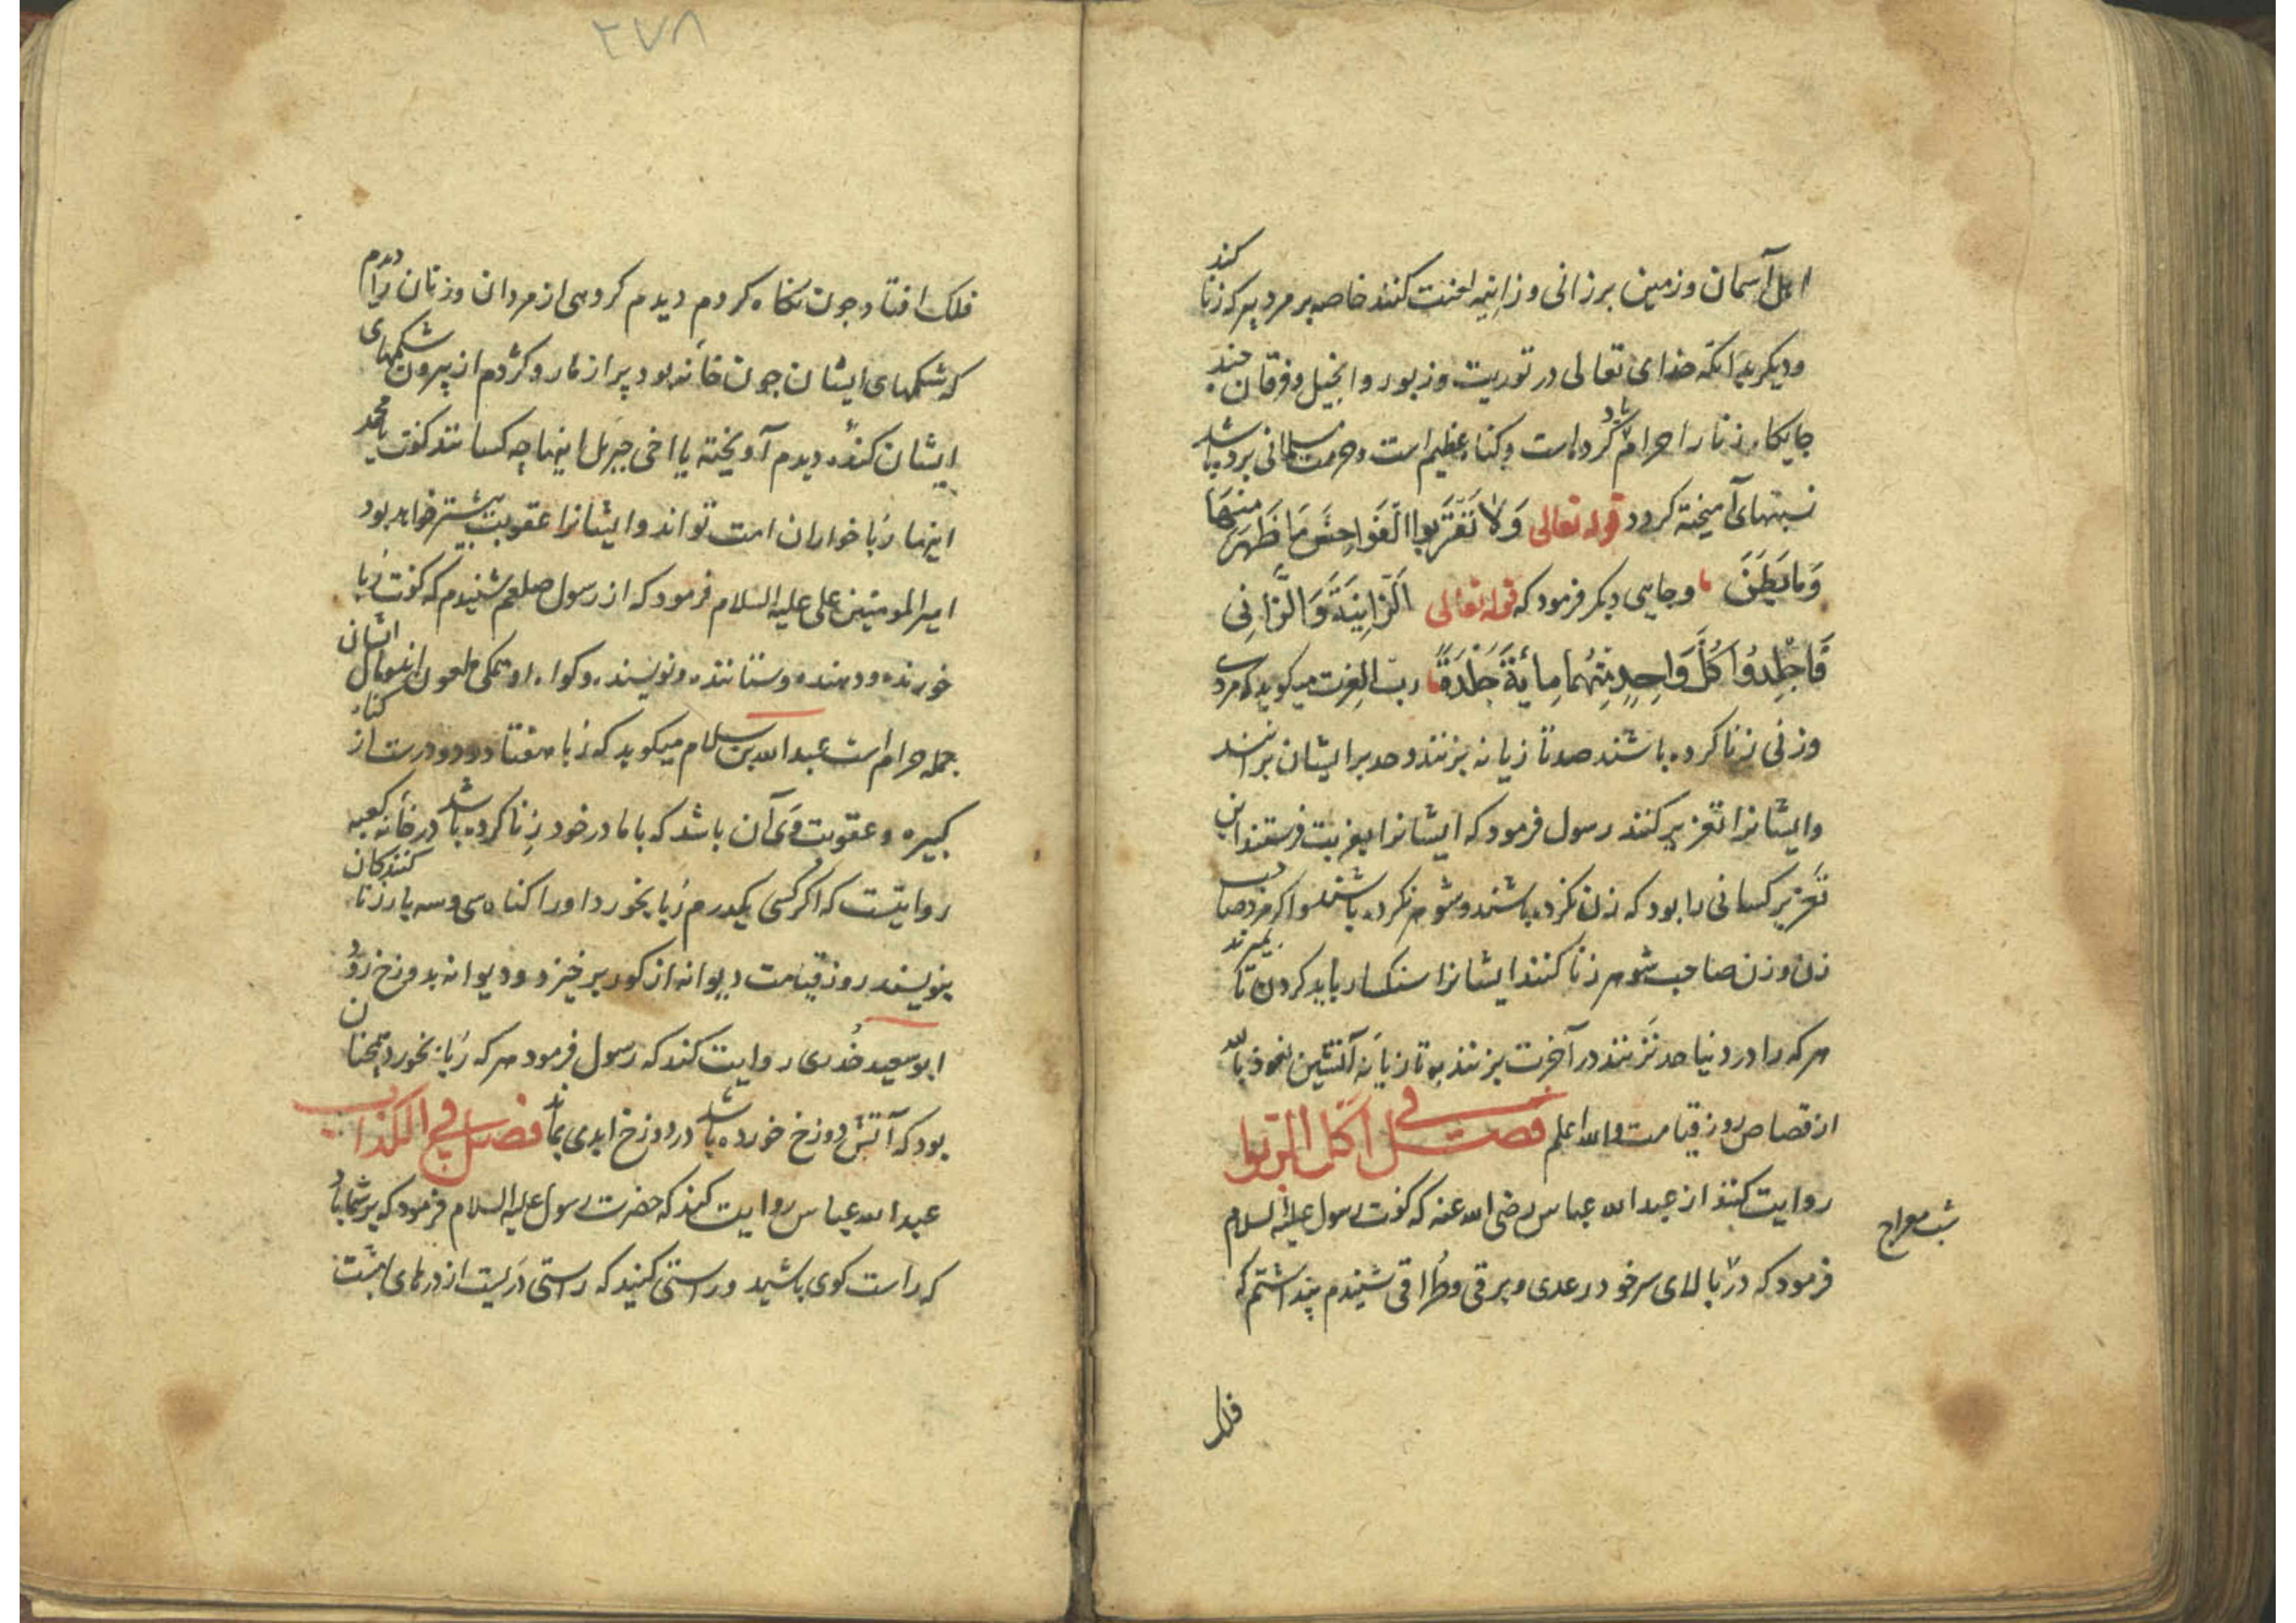 اهل آسمان و زمین بر زانی و زانیه لعنت کنند خاصه بر مرد پیر که زنا کند
و دیگر بدانکه خدای تعالی در توریت و زبور و انجیل و فرقان چند
جایگاه زنا را حرام یاد کرده است و گناه عظیم است و حرمت مسلمانی برده باشد
نسبتهای آمیخته کردد قوله تعالی وَلَا تَقْرَبُوا الْفَوَاحِشَ مَا ظَهَرَ مِنْهَا
وَمَا بَطَنَ و جایی دیکر فرمود که قوله تعالی الزَّانِیَةُ وَالزَّانِی
فَاجْلِدُوا کُلَّ وَاحِدٍ مِنْهُمَا مِائَةَ جَلْدَةٍ رب العزت میکوید که مردی
و زنی زنا کرده باشند صد تازیانه بزنند و حد بر ایشان برانند
و ایشانرا تعزیر کنند رسول فرمود که ایشانرا بغربت فرستند این
تعزیر کسانی را بود که زن نکرده باشند و شوهر نکرده باشند و اکر مرد صاحب
زن و زن صاحب شوهر زنا کنند ایشانرا سنکسار باید کردن تا بمیرند
هر که را در دنیا حد نزنند در آخرت بزنند به تازیانه آتشین نعوذ بالله
از قصاص روز قیامت والله اعلم فصل فی اکل الربوا
روایت کنند از عبد الله عباس رضی الله عنه که کفت رسول علیه السلام
شب معراج
فرمود که در بالای سر خود رعدی و برقی و طراقی شنیدم پنداشتم که
فلک
۲۷۸
فلک افتاد چون نکاه کردم دیدم کروهی از مردان و زنان را دیدم
که شکمهای ایشان چون خانه بود پر از مار و کژدم از بیرون شکمهای
ایشان کنده دیدم آویخته یا اخی جبریل اینها چه کسانند کفت یا محمد
اینها ربا خواران امت تواند و ایشانرا عقوبت بیشتر خواهد بود
امیر المومنین علی علیه السلام فرمود که از رسول صلعم شنیدم که کفت ربا
خورنده و دهنده و ستاننده و نویسنده و کواه او همکی ملعون اند و مال ایشان
جمله حرام است عبد الله بن سلام میکوید که ربا هفتاد و دو درست از کناه
کبیره و عقوبت وی آن باشد که با مادر خود زنا کرده باشد در خانه کعبه
روایتست که اکر کسی یکدرم ربا بخورد او را کناه سی و سه بار زنا کنندکان
بنویسند روز قیامت دیوانه از کور بر خیزد و دیوانه بدوزخ رود
ابو سعید خدری روایت کند که رسول فرمود هر که ربا بخورد همچنان
بود که آتش دوزخ خورده باشد در دوزخ ابدی بماند فصل فی الکذاب
عبد الله عباس روایت کند که حضرت رسول علیه السلام فرمود که بر شما باد
که راست کوی باشید و راستی کنید که راستی دریست از درهای بهشت